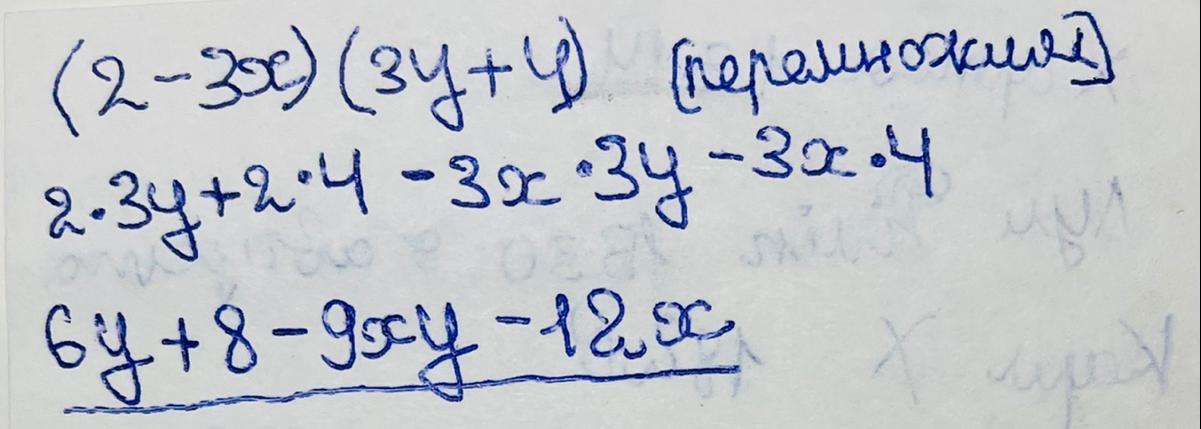 (2-3x)(3y+4) (перемножимо)
2·3y+2·4-3x·3y-3x·4
6y+8-9xy-12x